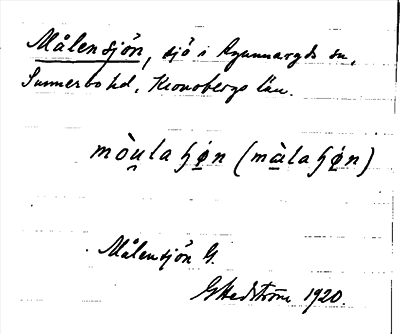 Målensjön, sjö i Ryssby sn,
Sunnerbo hd, Kronobergs län.
mòu̲la ɧø̲n (mà̲la ɧǿ̲n)
Målensjön G.
G Hedström 1920.